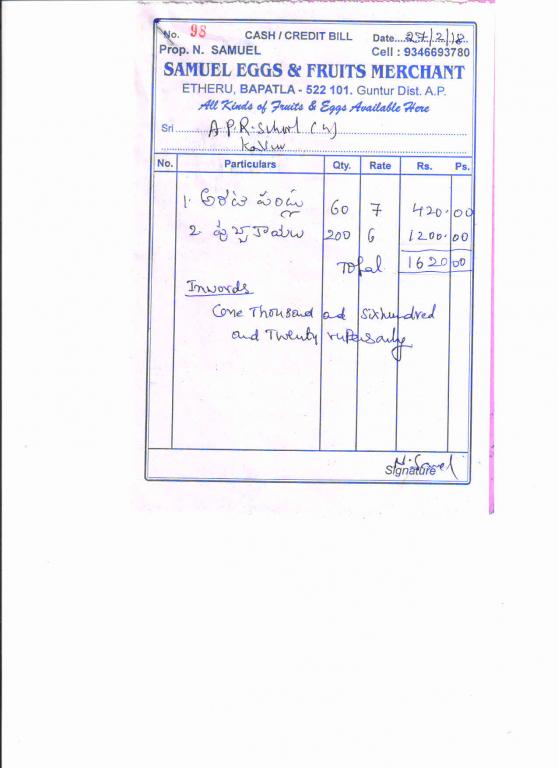 No. 98 CASH / CREDIT BILL Date....27/2/18..
Prop. N. SAMUEL Cell : 9346693780
SAMUEL EGGS & FRUITS MERCHANT
ETHERU, BAPATLA - 522 101. Guntur Dist. A.P.
All Kinds of Fruits & Eggs Available Here
Sri A.P.R. School (G)
No. Particulars Qty. Rate Rs. Ps.
1. అరటి పండ్లు 60 7 420.00
2. పుచ్చకాయలు 200 6 1200.00
Total 1620 00
Inwords
One Thousand and Sixhundred
and Twenty rupees only
Signature